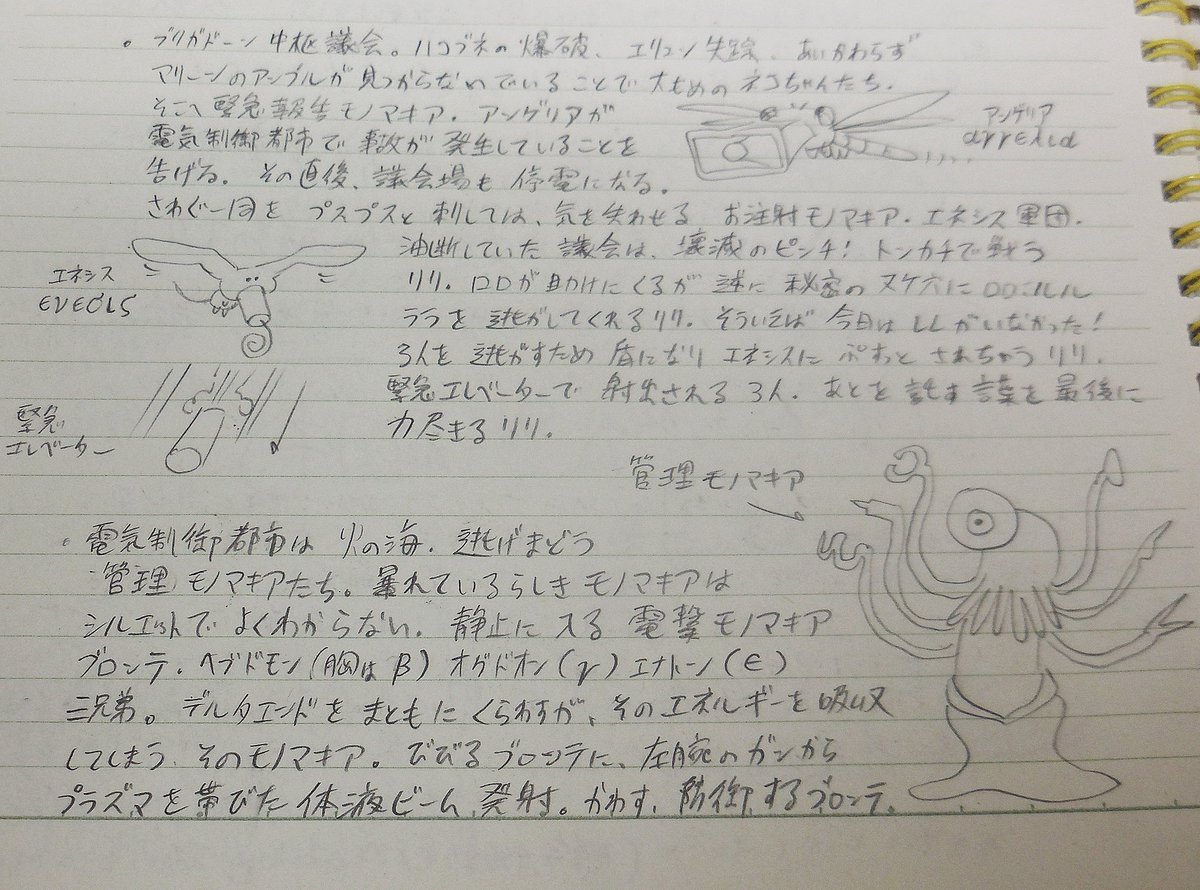 。ブリガドーン中枢議会。ハコブネの爆破、エリュン失踪、あいかわらず
マリーンのアンプルが見つからないでいることで大もめのネコちゃんたち。
そこへ緊急報告モノマキア・アンゲリアが
アンゲリア
αγγελια
電気制御都市で事故が発生していることを
告げる。その直後、議会場も停電になる。
さわぐ一同をプスプスと刺しては、気を失わせるお注射モノマキア・エネシス軍団。
油断していた議会は、壊滅のピンチ!トンカチで戦う
エネシス
ενεσις
リリ。ロロが助けにくるが逆に秘密のヌケ穴にロロ・ルル
ララを逃がしてくれるリリ。そういえば今日はレレがいなかった!
3人を逃がすため盾になりエネシスに されちゃうリリ。
緊急エレベーターで射出される3人。あとを託す言葉を最後に
力尽きるリリ。
緊急
エレベーター
管理モノマキア
。電気制御都市は火の海。逃げまどう
管理モノマキアたち。暴れているらしきモノマキアは
シルエットでよくわからない。静止に入る電撃モノマキア
ブロンテ・ヘブドモン(胸はβ)オグドオン(γ)エナトーン(ε)
三兄弟。デルタエンドをまともにくらわすが、そのエネルギーを吸収
してしまう そのモノマキア。びびるブロンテに、左腕のガンから
プラズマを帯びた体液ビーム発射。かわす、防御するブロンテ。